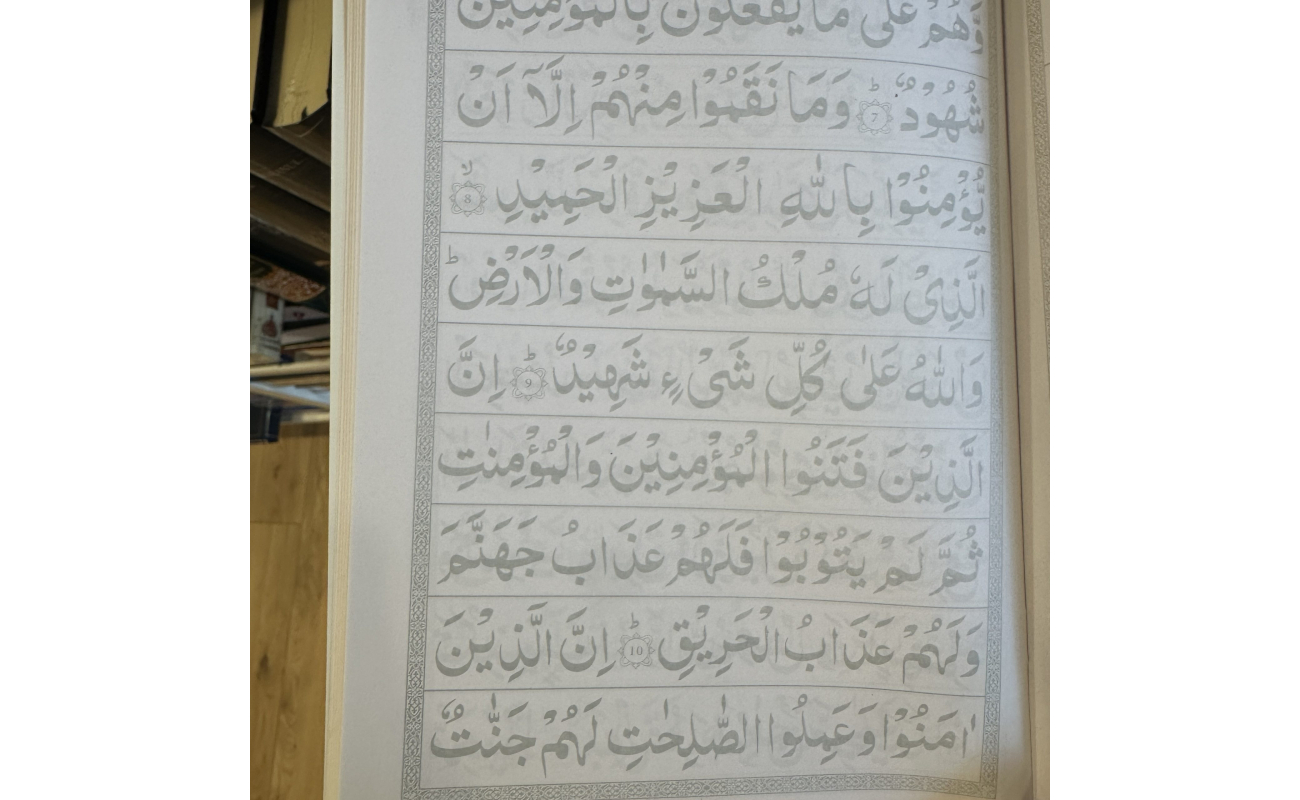 وَّهُمْ عَلٰى مَا يَفْعَلُوْنَ بِالْمُؤْمِنِيْنَ
شُهُوْدٌ ۭ7 وَمَا نَقَمُوْا مِنْهُمْ اِلَّآ اَنْ
يُّؤْمِنُوْا بِاللّٰهِ الْعَزِيْزِ الْحَمِيْدِ 8ۙ
الَّذِيْ لَهٗ مُلْكُ السَّمٰوٰتِ وَالْاَرْضِ ؕ
وَاللّٰهُ عَلٰى كُلِّ شَيْءٍ شَهِيْدٌ 9ؕ اِنَّ
الَّذِيْنَ فَتَنُوا الْمُؤْمِنِيْنَ وَالْمُؤْمِنٰتِ
ثُمَّ لَمْ يَتُوْبُوْا فَلَهُمْ عَذَابُ جَهَنَّمَ
وَلَهُمْ عَذَابُ الْحَرِيْقِ 10ؕ اِنَّ الَّذِيْنَ
اٰمَنُوْا وَعَمِلُوا الصّٰلِحٰتِ لَهُمْ جَنّٰتٌ